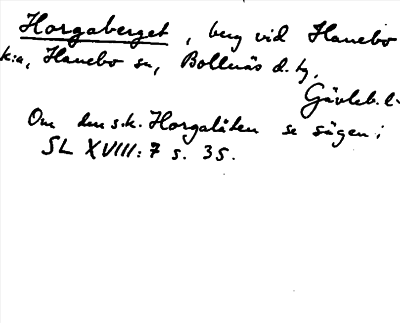 Horgaberget, berg vid Hanebo
k:a, Hanebo sn, Bollnäs d. tg,
Gävleb. l.
Om den s.k. Horgalåten se sägen i
SL XVIII: 7 s. 35.